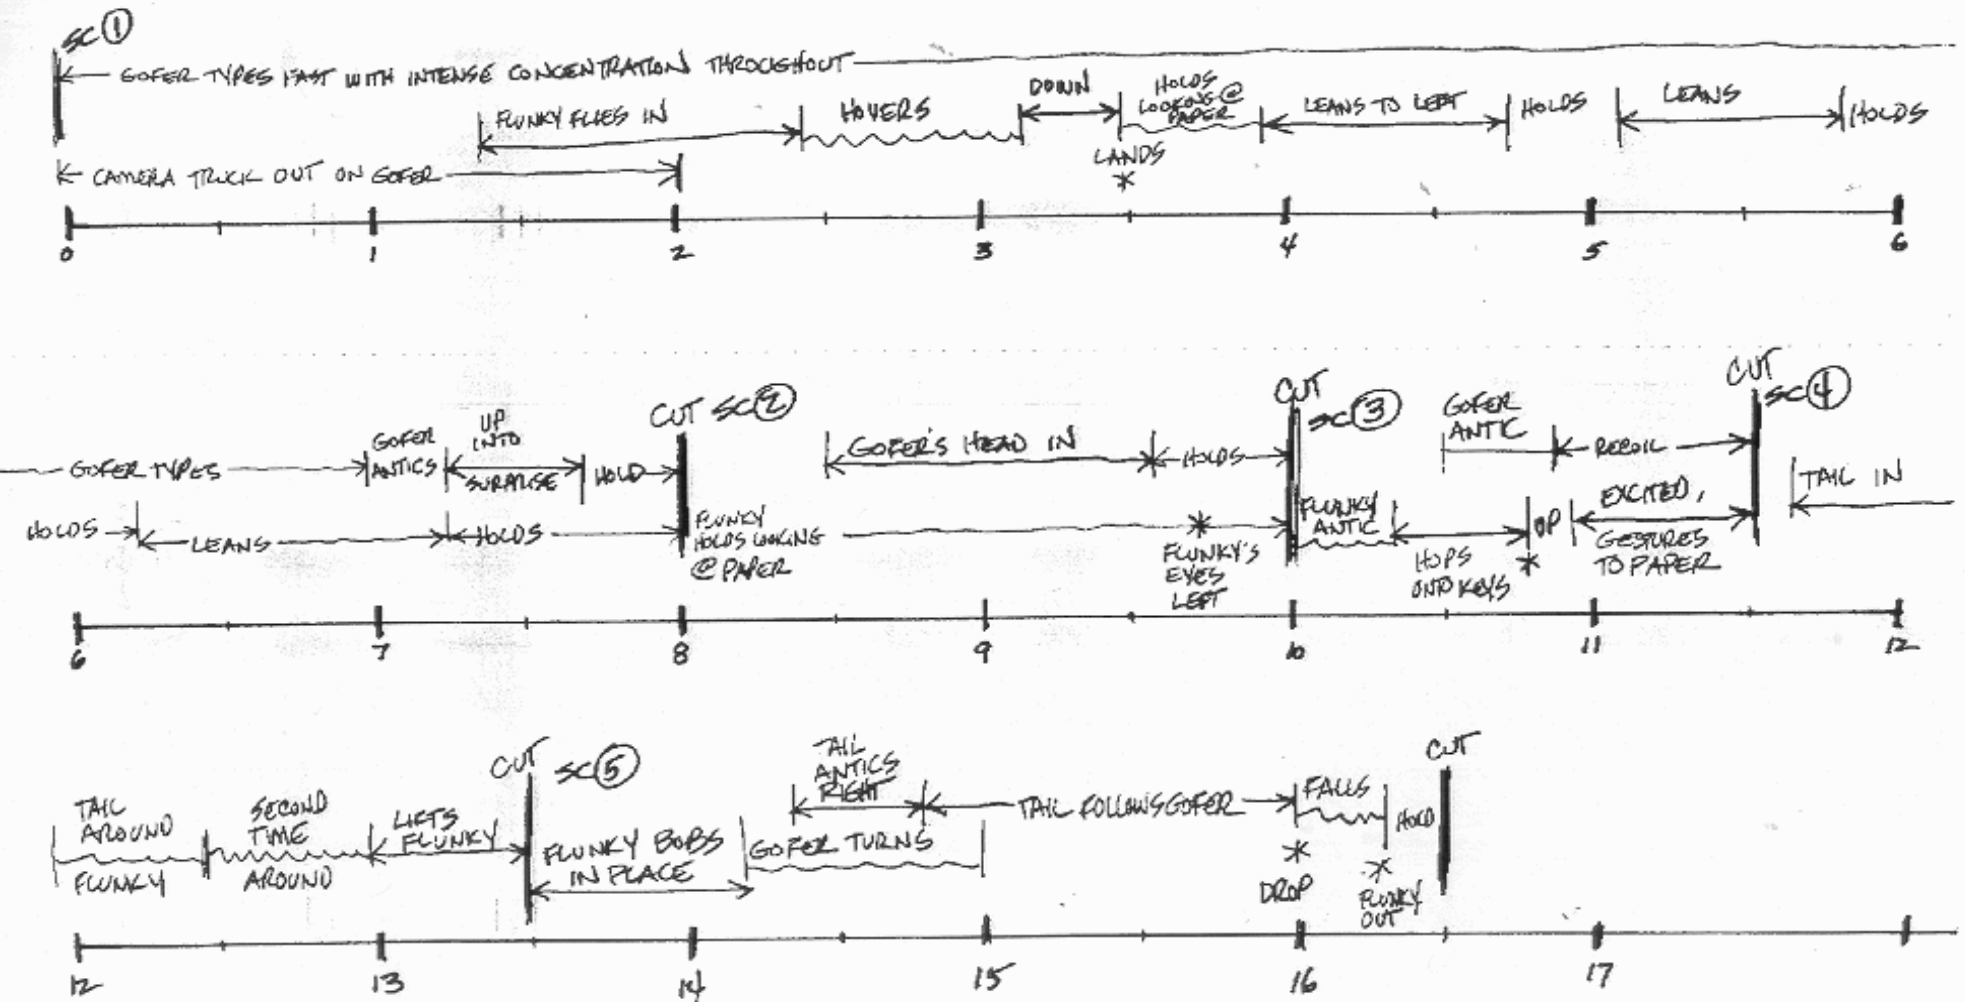 SC 1
GOFER TYPES FAST WITH INTENSE CONCENTRATION THROUGHOUT
FLUNKY FLIES IN
HOVERS
DOWN
HOLDS
LOOKING @
PAPER
LEANS TO LEFT
HOLDS
LEANS
HOLDS
LANDS
*
CAMERA TRUCK OUT ON GOFER
0 1 2 3 4 5 6
CUT SC 2
CUT
SC 3
CUT
SC 4
GOFER TYPES
GOFER
ANTICS
UP
INTO
SURPRISE
HOLD
GOFER'S HEAD IN
HOLDS
GOFER
ANTIC
RECOIL
TAIL IN
HOLDS
LEANS
HOLDS
FLUNKY
HOLDS LOOKING
@ PAPER
*
FLUNKY'S
EYES
LEFT
FLUNKY
ANTIC
HOPS
ONTO KEYS
UP
*
EXCITED,
GESTURES
TO PAPER
6 7 8 9 10 11 12
CUT SC 5
CUT
TAIL
AROUND
FLUNKY
SECOND
TIME
AROUND
LIFTS
FLUNKY
FLUNKY BOBS
IN PLACE
TAIL
ANTICS
RIGHT
GOFER TURNS
TAIL FOLLOWS GOFER
FALLS
HOLD
*
DROP
*
FLUNKY
OUT
12 13 14 15 16 17